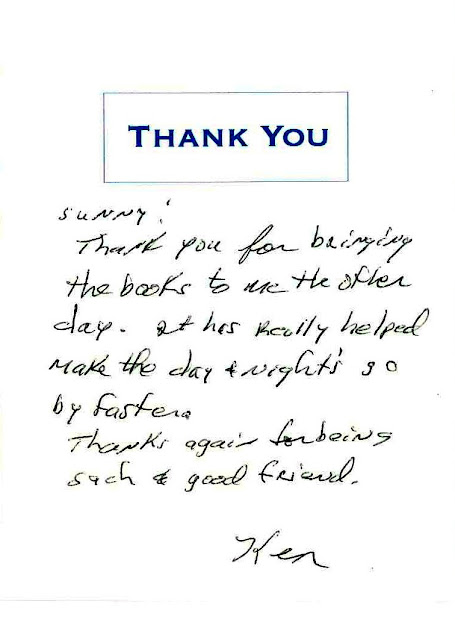 THANK YOU
SUNNY!
Thank you for bringing
the books to me the other
day. It has really helped
make the day & night's go
by faster.
Thanks again for being
such a good friend.
Ken